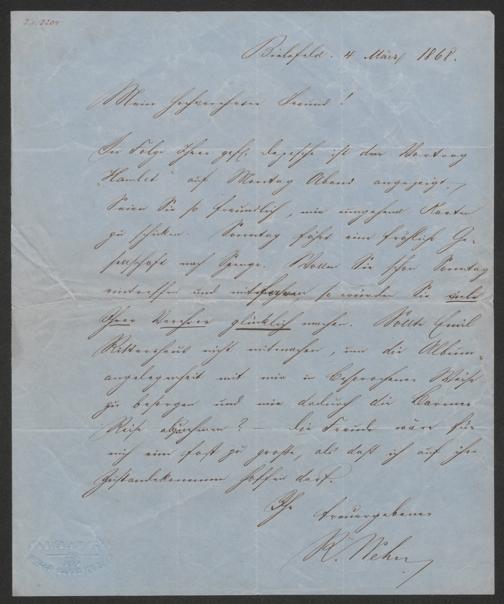 Bielefeld. 4 März 1868.
Mein hochverehrter Freund!
In Folge Ihrer gefl. Depesche ist der Vortrag
"Hamlet" auf Montag Abend angezeigt.
Seien Sie so freundlich, mir umgehend Karten
zu schicken. Sonntag fährt eine fröhliche Ge-
sellschaft nach Spenge. Wollen Sie schon Sonntag
eintreffen und mitfahren so würden Sie viele
Ihrer Verehrer glücklich machen. Sollte Emil
Rittershaus nicht mitmachen, um die Album-
angelegenheit mit mir in besprochener Weise
zu besorgen und mir dadurch die Barmer
Reise abzunehmen? – die Freude wäre für
mich eine fast zu große, als daß ich auf ihr
Zustandekommen hoffen darf.
Ihr
treuergebener
R.